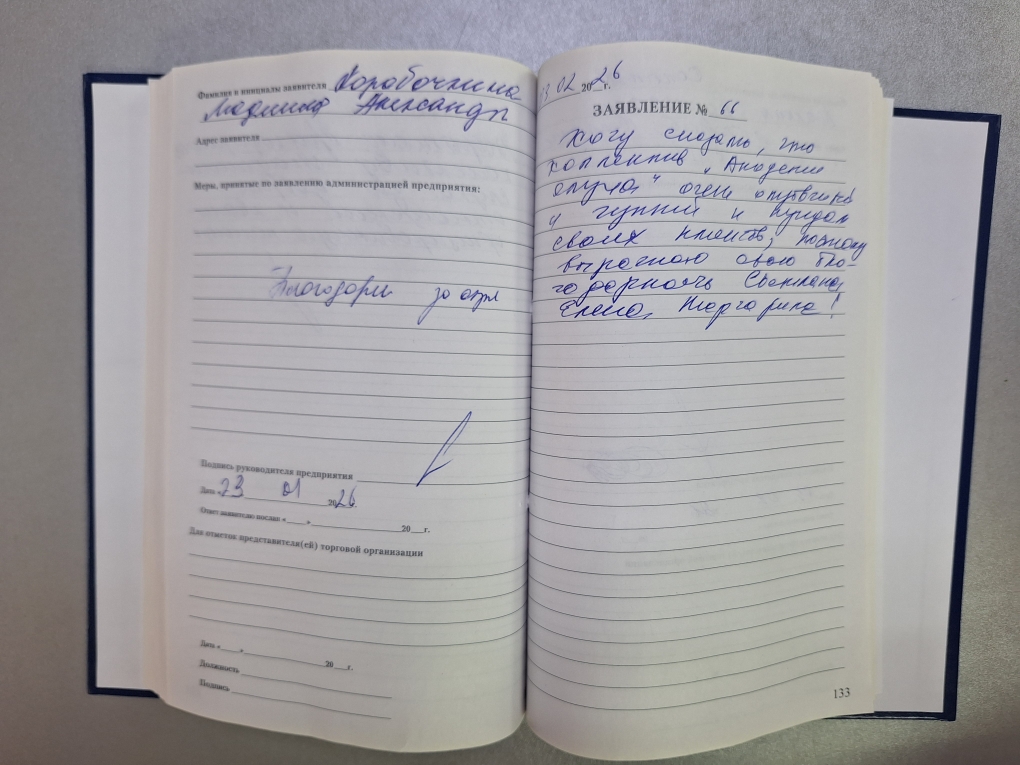 Фамилия и инициалы заявителя Коробочкина
Людмила Александр
Адрес заявителя
Меры, принятые по заявлению администрацией предприятия:
Благодарим за отзыв
Подпись руководителя предприятия
Дата «23 01 2026
Ответ заявителю послан «____» 20__г.
Для отметок представителя(ей) торговой организации
Дата «____» 20__г.
Должность
Подпись
02 2026 г.
ЗАЯВЛЕНИЕ № 66
Хочу сказать, что
коллектив „Академии
слуха" очень отзывчив
и чуткий к нуждам
своих клиентов, поэтому
выражаю свою бла-
годарность Светлана,
Елена, Маргарита!
133